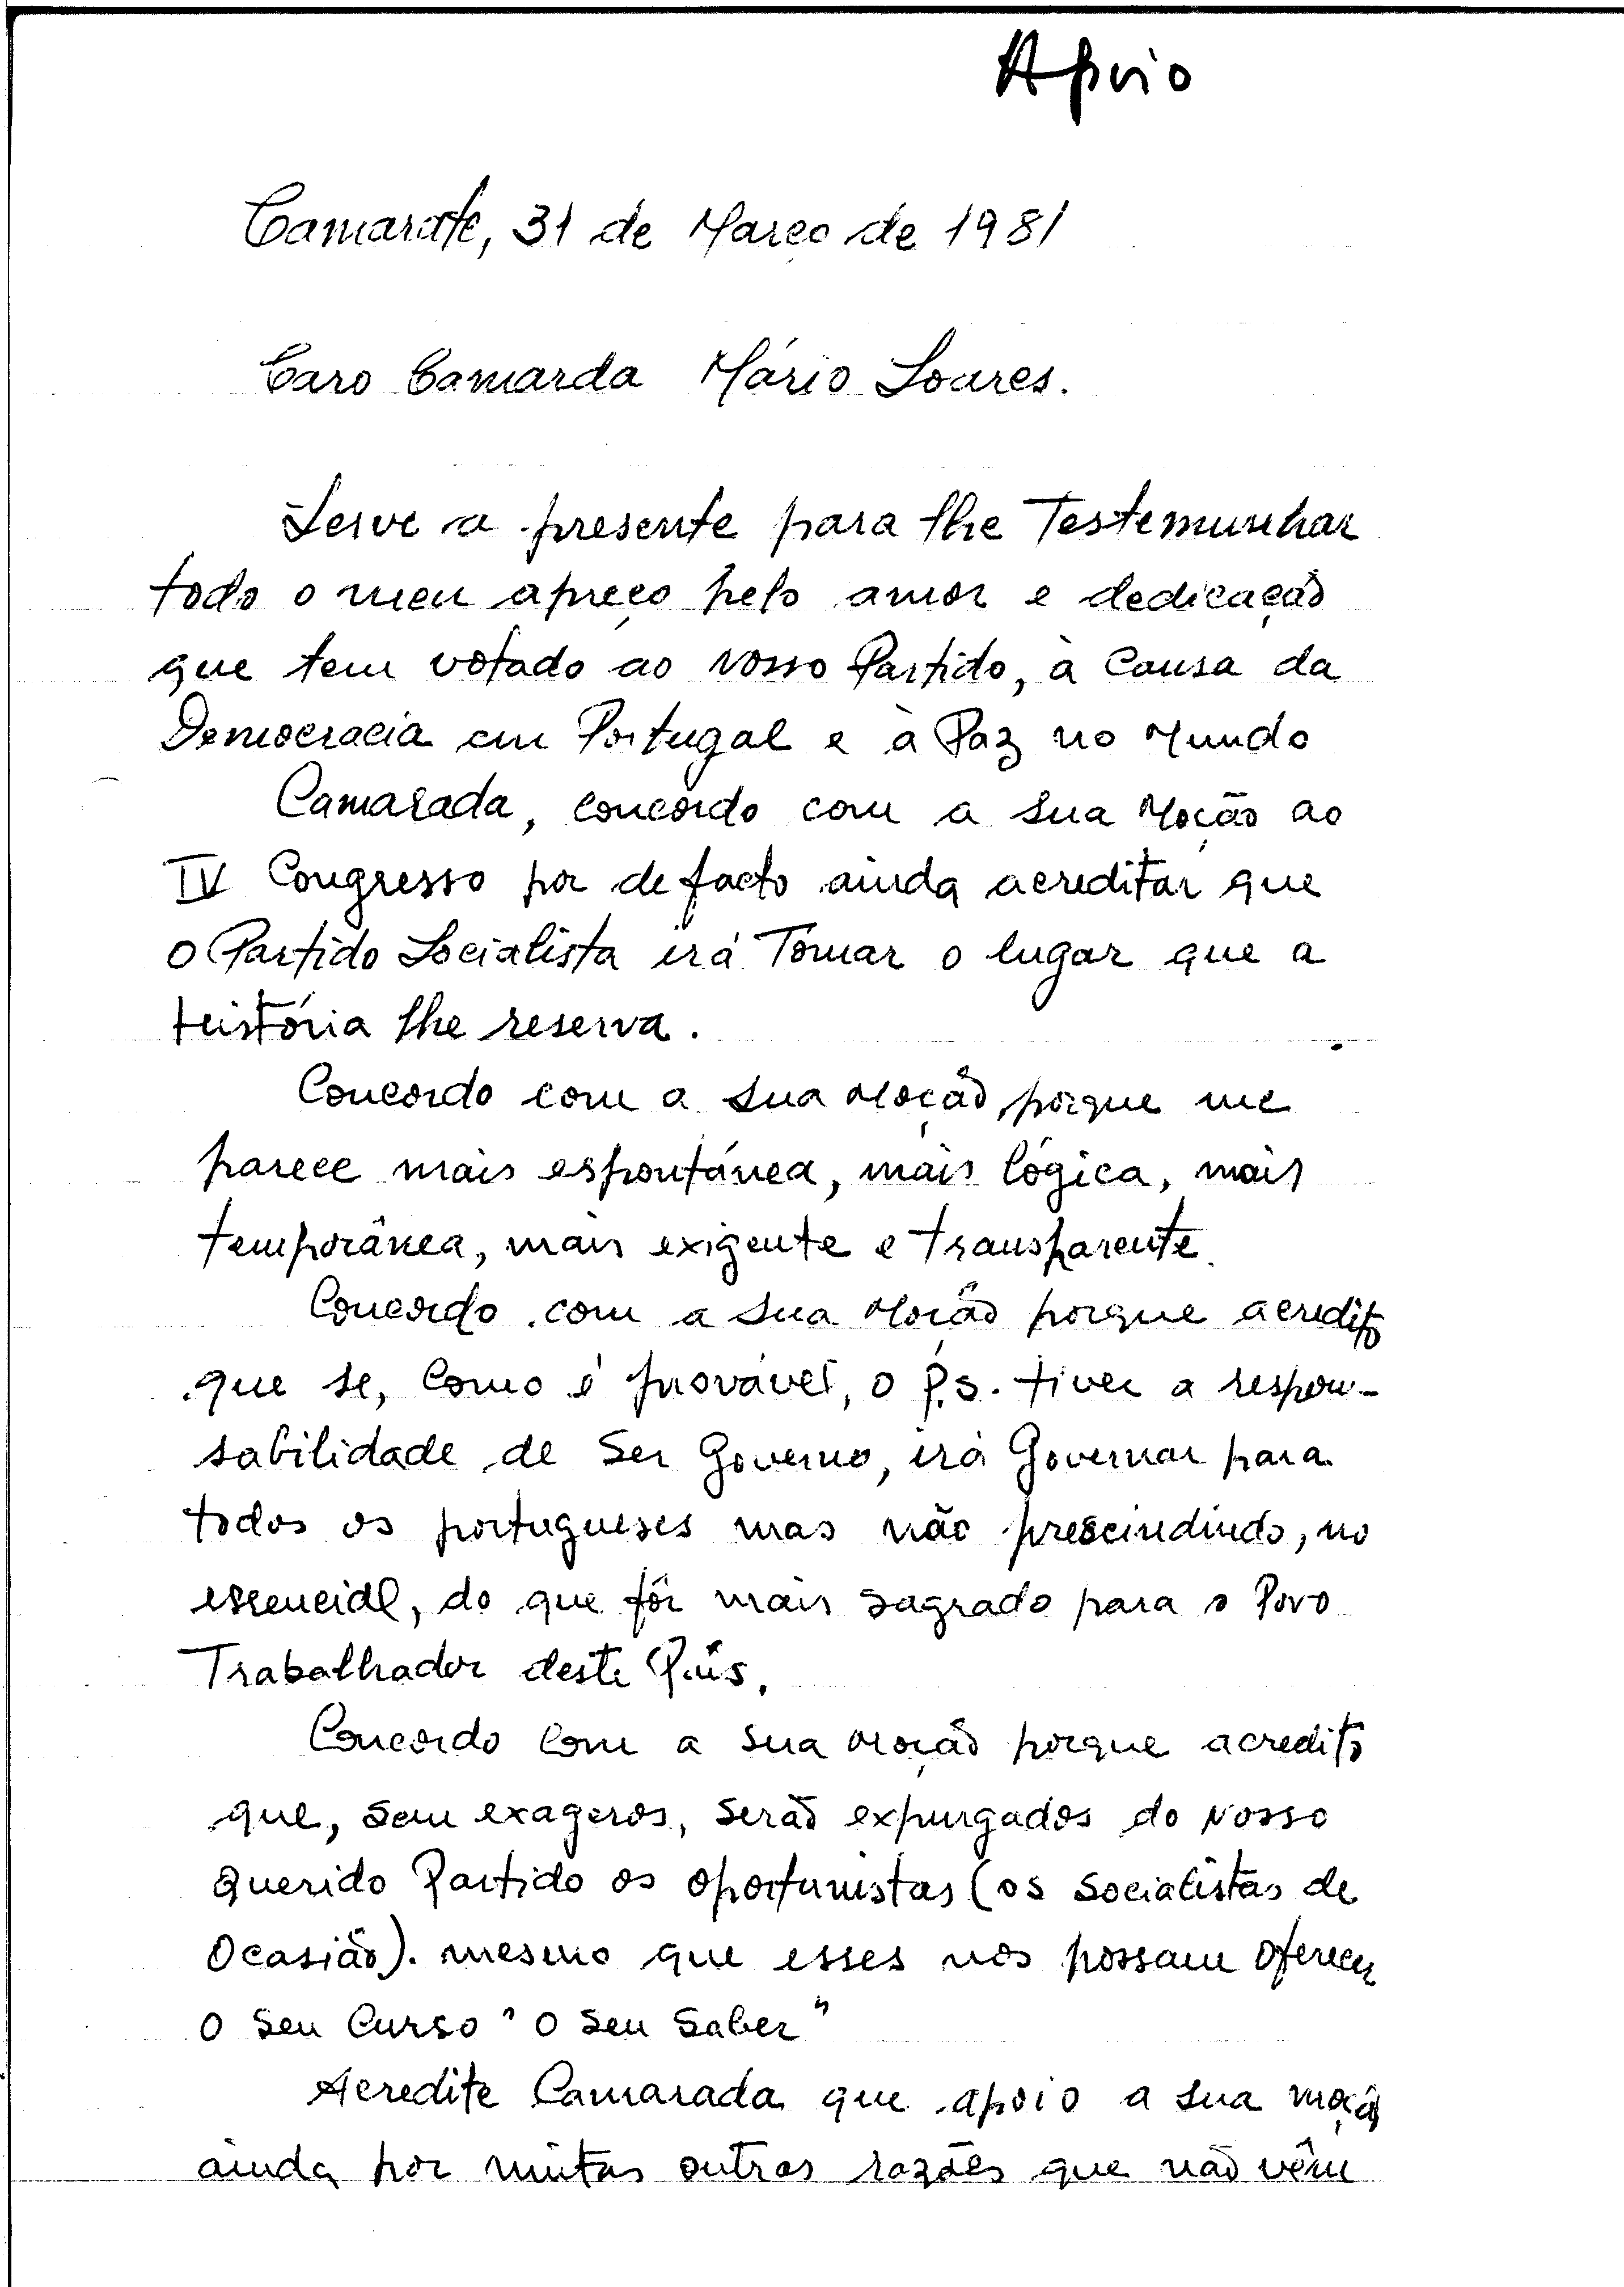 Apoio
Camarate, 31 de Março de 1981
Caro Camarda Mário Soares.
Serve a presente para lhe Testemunhar
todo o meu apreço pelo amor e dedicação
que tem votado ao nosso Partido, à Causa da
Democracia em Portugal e à Paz no Mundo
Camarada, concordo com a sua Moção ao
IV Congresso por de facto ainda acreditar que
o Partido Socialista irá Tomar o lugar que a
História lhe reserva.
Concordo com a sua Moção porque me
parece mais espontánea, mais lógica, mais
temporânea, mais exigente e transparente.
Concordo com a sua Moção porque acredito
que se, como é provável, o P.S. tiver a respon-
sabilidade de Ser Governo, irá Governar para
todos os portugueses mas não prescindindo, no
essencial, do que fôr mais sagrado para o Povo
Trabalhador deste País.
Concordo com a sua Moção porque acredito
que, sem exageros, serão expurgados do nosso
querido Partido os oportunistas (os socialistas de
Ocasião). mesmo que esses nos possam oferecer
o seu Curso "o seu Saber"
Acredite Camarada que apoio a sua moção
ainda por muitas outras razões que não vêm